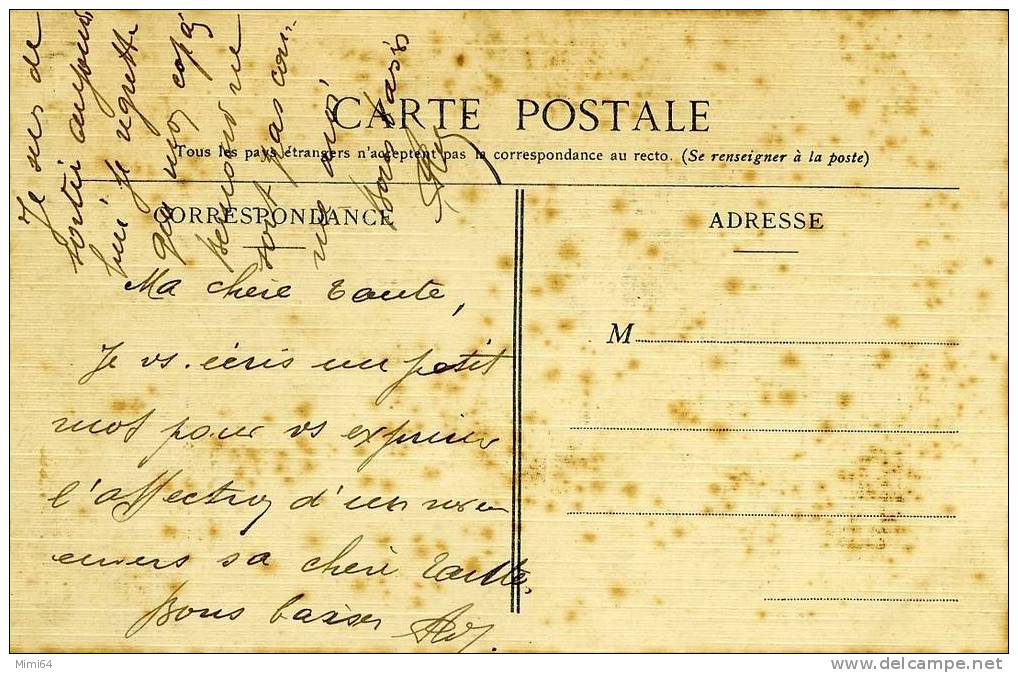 CARTE POSTALE
Tous les pays étrangers n'acceptent pas la correspondance au recto. (Se renseigner à la poste)
CORRESPONDANCE
ADRESSE
M
Ma chère tante,
Je vs. écris un petit
mot pour vs exprimer
l'affection d'un neveu
envers sa chère tante,
Bons baiser
Je suis de
sortie aujourd
hui je regrette
que mon
ne
soit pas
bons baisers
Mimi64
http://www.delcampe.net